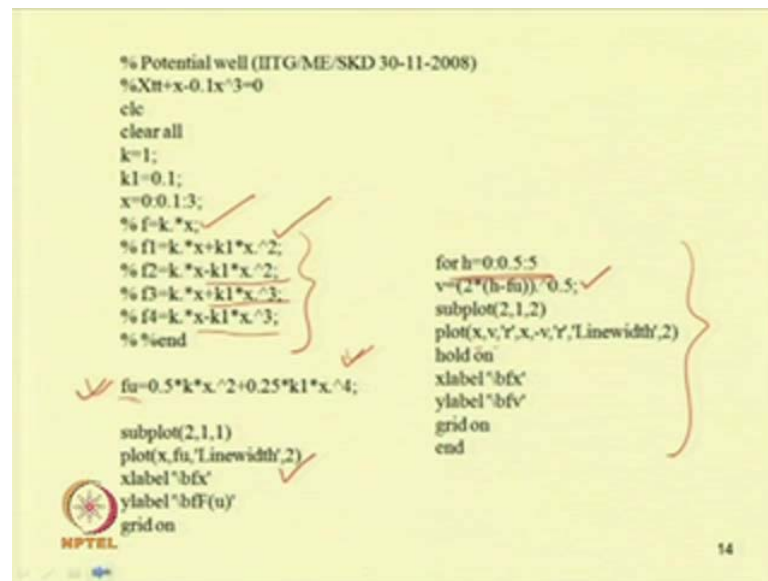 % Potential well (IITG/ME/SKD 30-11-2008)
%Xtt+x-0.1x^3=0
clc
clear all
k=1;
k1=0.1;
x=0:0.1:3;
% f=k.*x;
% f1=k.*x+k1*x.^2;
% f2=k.*x-k1*x.^2;
% f3=k.*x+k1*x.^3;
% f4=k.*x-k1*x.^3;
% %end
fu=0.5*k*x.^2+0.25*k1*x.^4;
subplot(2,1,1)
plot(x,fu,'Linewidth',2)
xlabel '\bfx'
ylabel '\bfF(u)'
grid on
for h=0:0.5:5
v=(2*(h-fu)).^0.5;
subplot(2,1,2)
plot(x,v,'r',x,-v,'r','Linewidth',2)
hold on
xlabel '\bfx'
ylabel '\bfv'
grid on
end
NPTEL
14